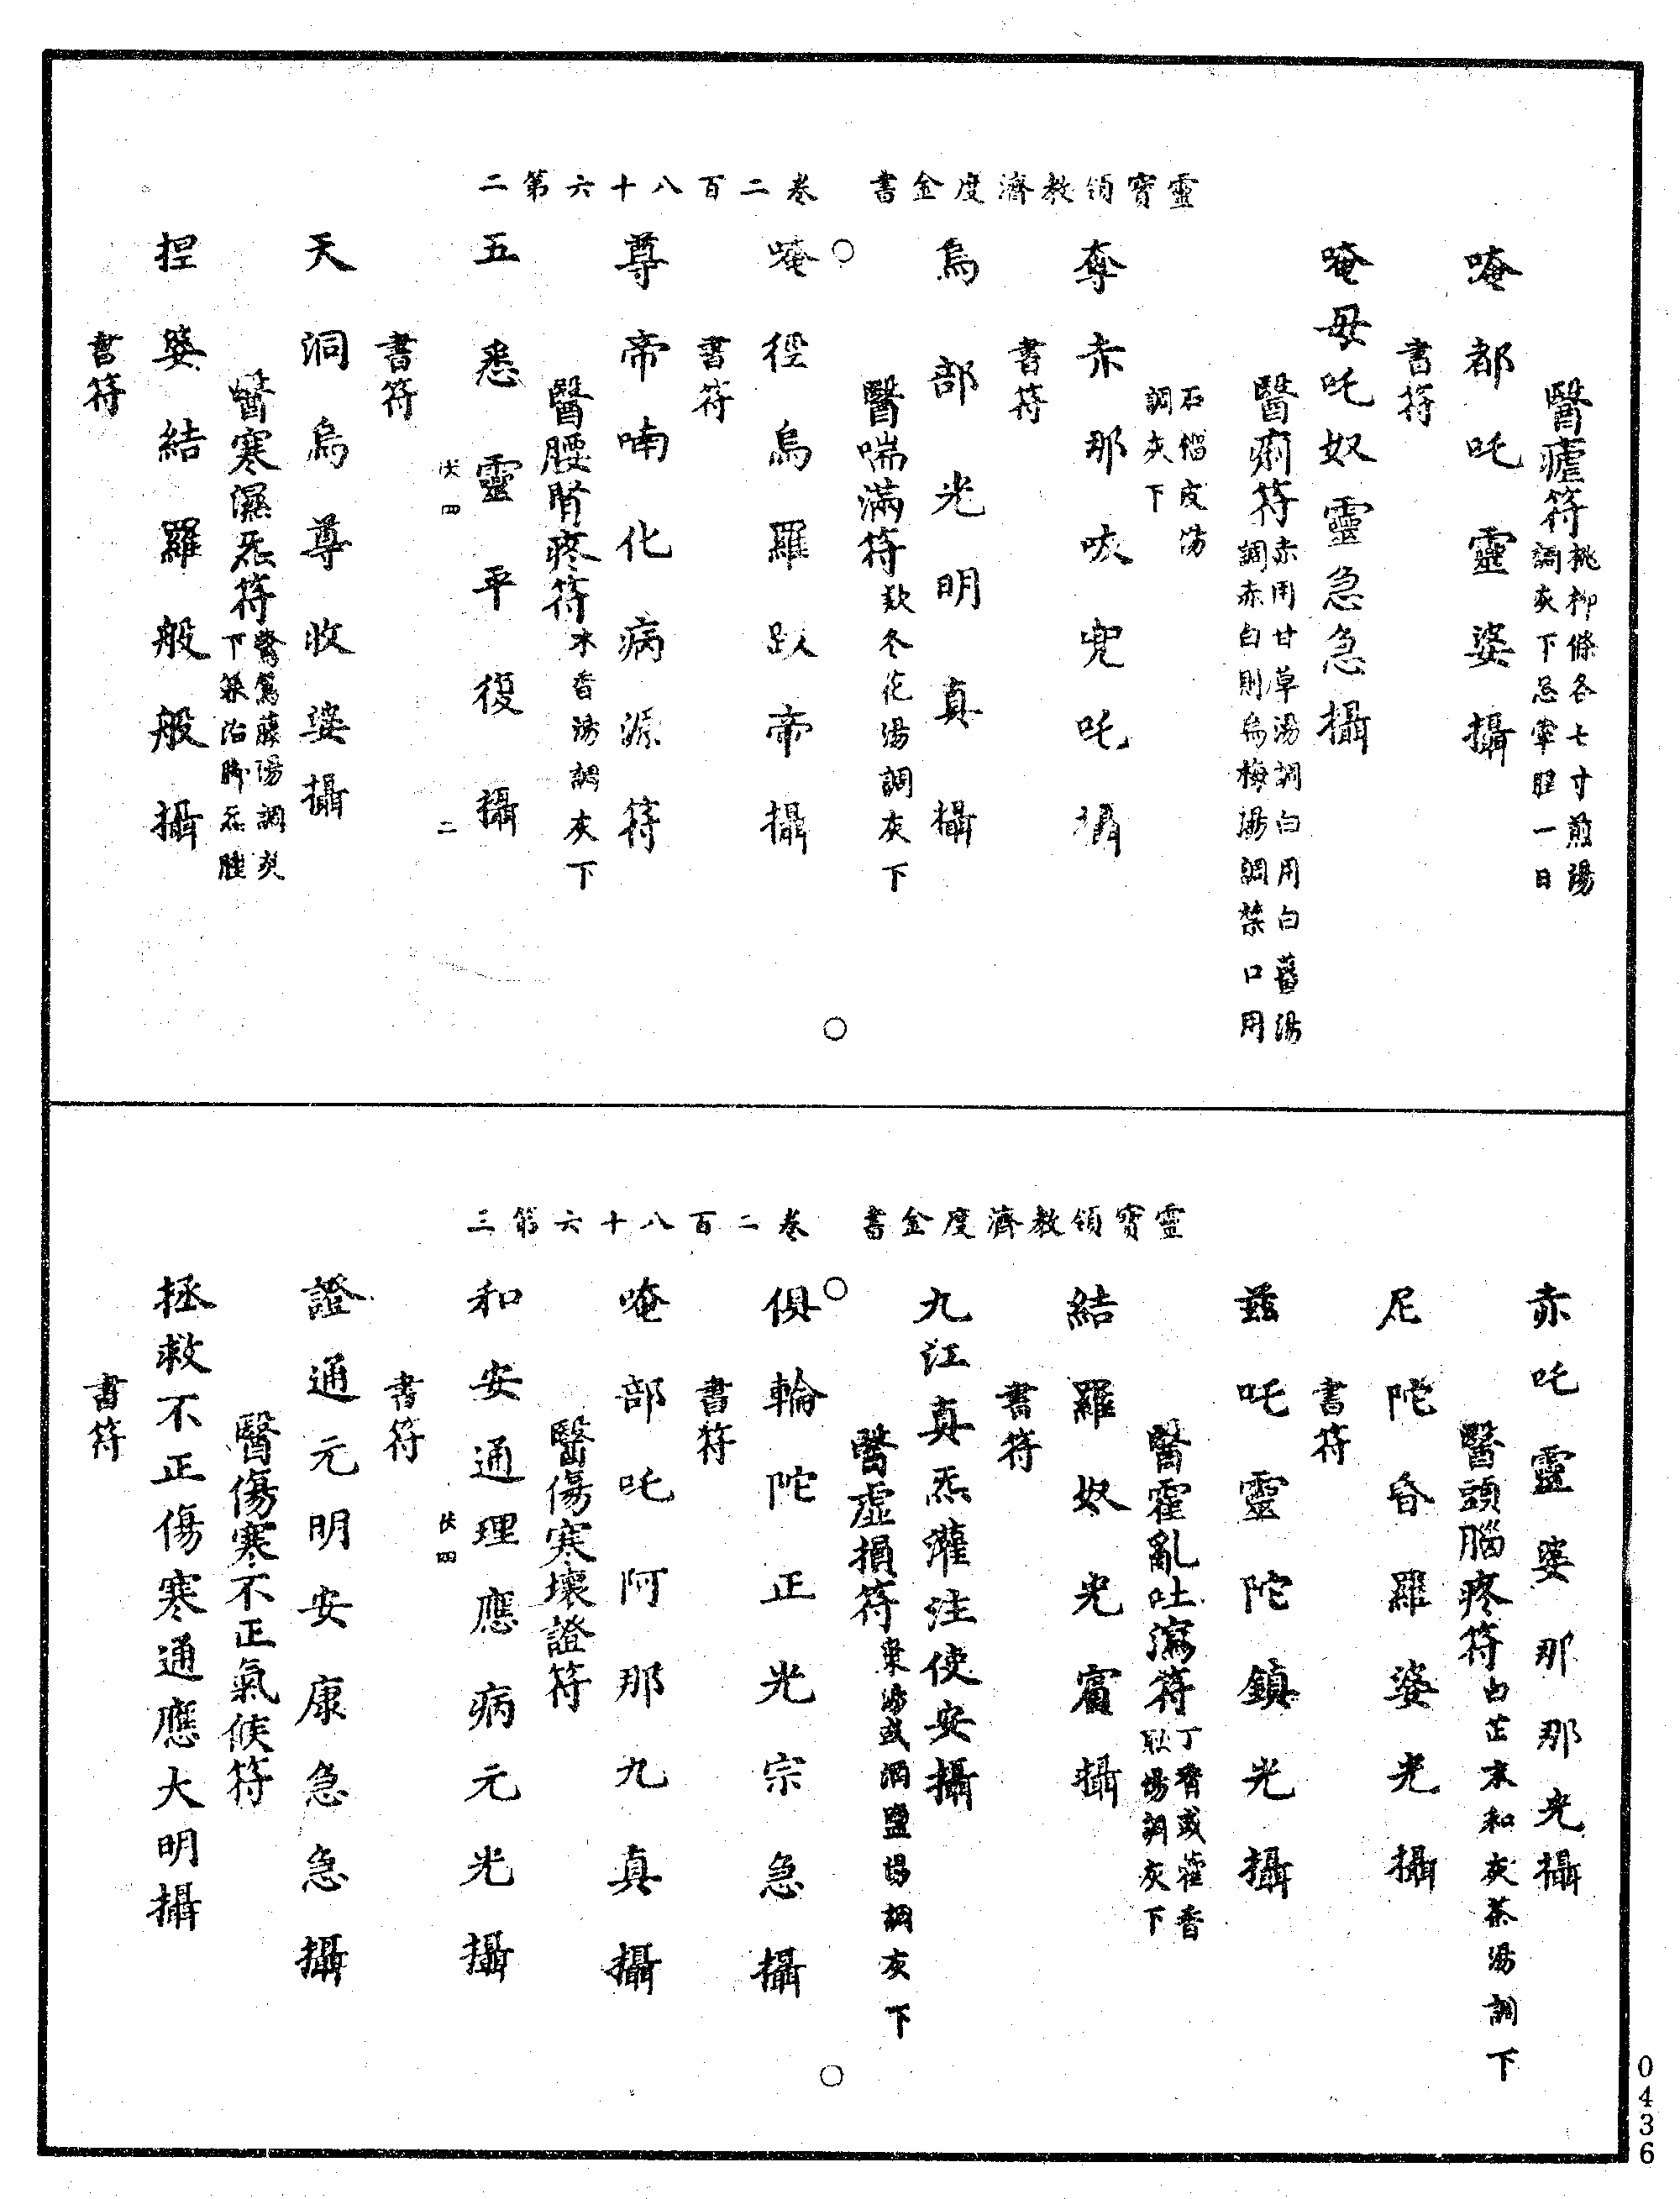 靈寶領教濟度金書　卷二百八十六第二
醫瘧符桃柳條各七寸煎湯調灰下忌葷腥一日
唵都吒靈婆攝
書符
唵母吒奴靈急急攝
醫痢符赤用甘草湯調白用白薑湯調赤白則烏梅湯調禁口用
石榴皮湯調灰下
奪赤那唊兜吒攝
書符
烏部光明真攝
醫喘滿符欵冬花湯調灰下
唵徑烏羅趴帝攝
書符
尊帝喃化病源符
醫腰腎疼符木香湯調灰下
五悉靈平復攝
伏四　二
書符
天洞烏尊收婆攝
醫寒濕炁符鴛鴦藤湯調灰下兼治脚炁腫
捏婆結羅般般攝
書符
靈寶領教濟度金書　卷二百八十六第三
赤吒靈婆那那光攝
醫頭腦疼符白芷末和灰茶湯調下
尼陀昏羅婆光攝
書符
茲吒靈陀鎮光攝
醫霍亂吐瀉符丁香或藿香湯調灰下
結羅奴光賓攝
書符
九江真炁灌注使安攝
醫虛損符棗湯或酒鹽湯調灰下
俱輪陀正光宗急攝
書符
唵部吒阿那九真攝
醫傷寒壞證符
和安通理應病元光攝
伏四
書符
證通元明安康急急攝
醫傷寒不正氣候符
拯救不正傷寒通應大明攝
書符
0436